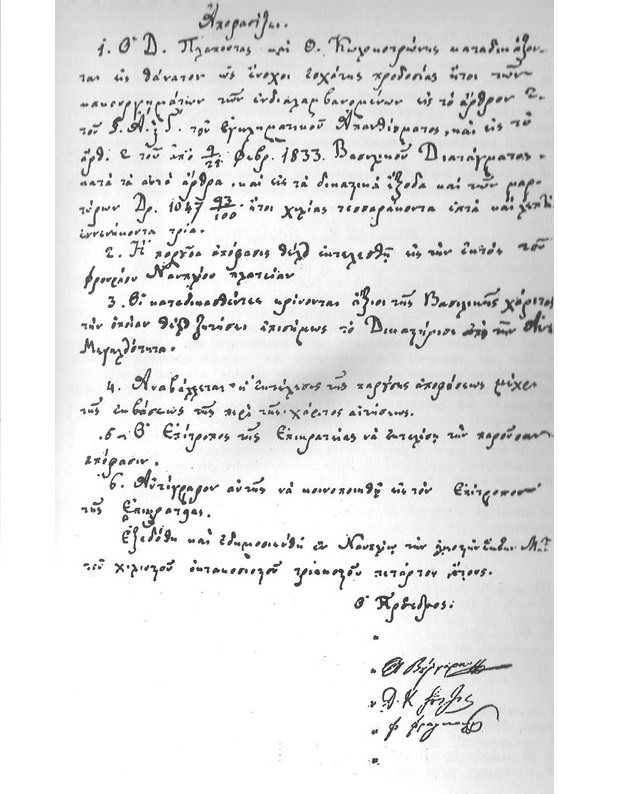 Ἀποφασίζει.
1. Ὁ Δ. Πλαπούτας καὶ Θ. Κωλοκοτρώνης καταδικάζον-
ται εἰς θάνατον ὡς ἔνοχοι ἐσχάτης προδοσίας ἤτοι τῶν
κακουργημάτων τῶν ἐνδιαλαμβανομένων εἰς τὸ ἄρθρον 2.
τοῦ τοῦ ἐγκληματικοῦ Ἀπανθίσματος, καὶ εἰς τὸ
ἄρθ. 2 τοῦ ἀπὸ 9/21 φεβρ. 1833. Βασιλικοῦ Διατάγματος.
κατὰ τὰ αὐτὰ ἄρθρα, καὶ εἰς τὰ δικαστικὰ ἔξοδα καὶ τῶν μαρ-
τύρων Δρ. 1047 93/100. ἤτοι χιλίας τεσσαράκοντα ἑπτὰ καὶ λεπτὰ
ἐννενήκοντα τρία.
2. Ἡ παροῦσα ἀπόφασις θέλει ἐκτελεσθῆ εἰς τὴν ἐκτὸς τοῦ
φρουρίου Ναυπλίου πλατεῖαν
3. Οἱ καταδικασθέντες κρίνονται ἄξιοι τῆς Βασιλικῆς χάριτος
τὴν ὁποίαν θέλει ζητήσει ἐπισήμως τὸ Δικαστήριον ἀπὸ τὴν Αὐτοῦ
Μεγαλειότητα.
4. Ἀναβάλλεται ἡ ἐκτέλεσις τῆς παρούσης ἀποφάσεως μέχρι
τῆς ἐκβάσεως τῆς περὶ τῆς χάριτος αἰτήσεως.
5 Ὁ Ἐπίτροπος τῆς Ἐπικρατείας νὰ ἐκτελέσῃ τὴν παροῦσαν
ἀπόφασιν.
6. Ἀντίγραφον αὐτῆς νὰ κοινοποιηθῇ εἰς τὸν Ἐπίτροπον
τῆς Ἐπικρατείας.
Ἐξεδόθη καὶ ἐδημοσιεύθη ἐν Ναυπλίῳ τὴν
τοῦ χιλιοστοῦ ὀκτακοσιοστοῦ τριακοστοῦ τετάρτου ἔτους.
Ὁ Πρόεδρος:
"
" Δ Βούλγαρης
" Δ. Κ Σούτζος
" Φ Φραγκούλης
"